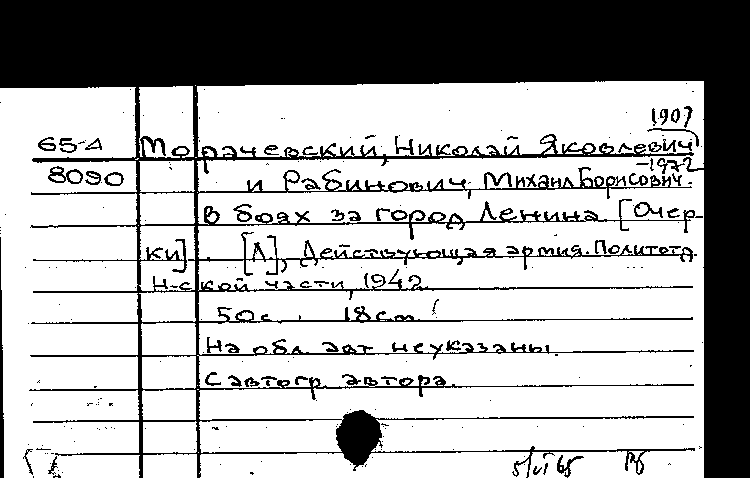 1907
65-4 Морачевский, Николай Яковлевич
-1972
8090 и Рабинович, Михаил Борисович.
В боях за город Ленина [Очер-
ки]. [Л], Действующая армия. Политотд.
Н-ской части, 1942.
50с. 18см.
На обл. авт не указаны.
С автогр. автора.
5/VI 65